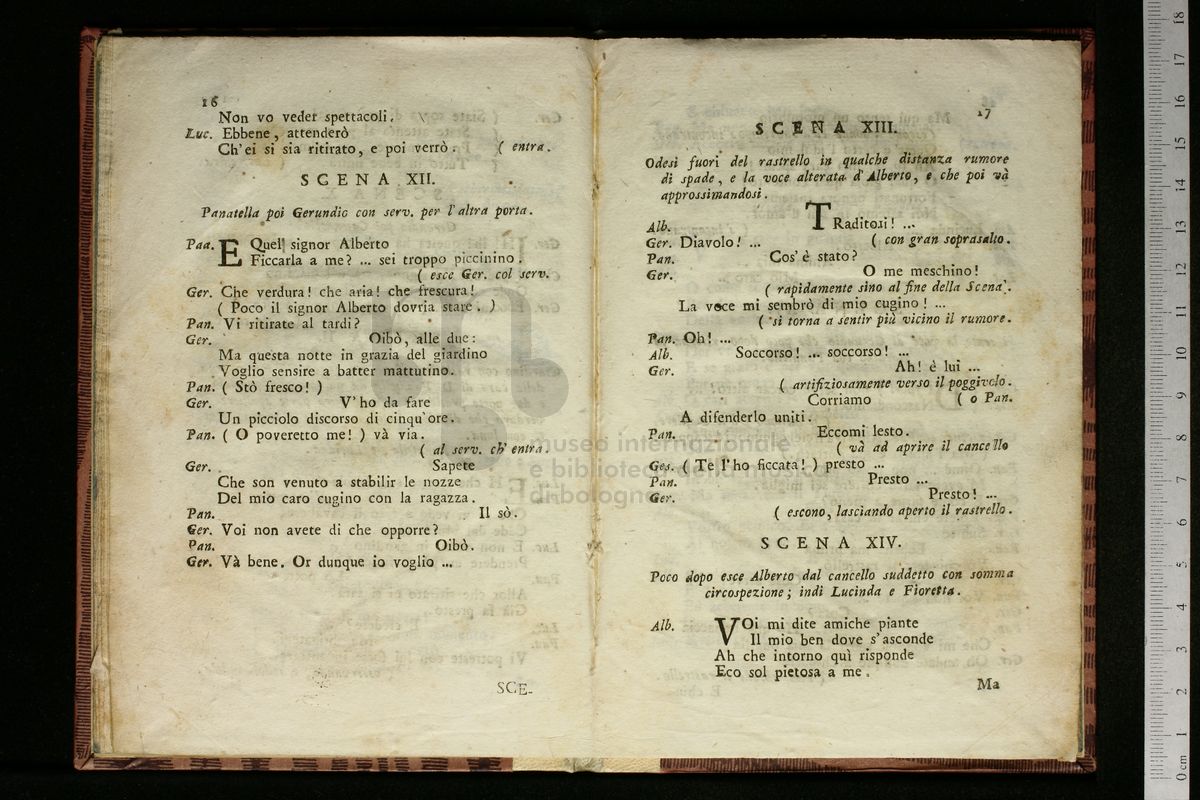 16
Non vo veder spettacoli.
Luc. Ebbene, attenderò
Ch'ei si sia ritirato, e poi verrò. ( entra.
SCENA XII.
Panatella poi Gerundio con serv. per l'altra porta.
Paa. E Quel signor Alberto
Ficcarla a me? ... sei troppo piccinino.
( esce Ger. col serv.
Ger. Che verdura! che aria! che frescura!
( Poco il signor Alberto dovria stare. )
Pan. Vi ritirate al tardi?
Ger. Oibò, alle due:
Ma questa notte in grazia del giardino
Voglio sensire a batter mattutino.
Pan. ( Stò fresco! )
Ger. V'ho da fare
Un picciolo discorso di cinqu'ore.
Pan. ( O poveretto me! ) và via.
( al serv. ch'entra.
Ger. Sapete
Che son venuto a stabilir le nozze
Del mio caro cugino con la ragazza.
Pan. Il sò.
Ger. Voi non avete di che opporre?
Pan. Oibò.
Ger. Và bene. Or dunque io voglio ...
SCE-
17
SCENA XIII.
Odesi fuori del rastrello in qualche distanza rumore
di spade, e la voce alterata d'Alberto, e che poi và
approssimandosi.
Alb. TRaditori! ...
Ger. Diavolo! ... ( con gran soprasalto.
Pan. Cos'è stato?
Ger. O me meschino!
( rapidamente sino al fine della Scena.
La voce mi sembrò di mio cugino! ...
( si torna a sentir più vicino il rumore.
Pan. Oh! ...
Alb. Soccorso! ... soccorso! ...
Ger. Ah! è lui ...
( artifiziosamente verso il poggivolo.
Corriamo ( o Pan.
A difenderlo uniti.
Pan. Eccomi lesto.
( và ad aprire il cancello
Ges. ( Te l'ho ficcata! ) presto ...
Pan. Presto ...
Ger. Presto! ...
( escono, lasciando aperto il rastrello.
SCENA XIV.
Poco dopo esce Alberto dal cancello suddetto con somma
circospezione; indi Lucinda e Fioretta.
Alb. VOi mi dite amiche piante
Il mio ben dove s'asconde
Ah che intorno quì risponde
Eco sol pietosa a me.
Ma
museo internazionale
e biblioteca della musica
di bologna
0 cm 1 2 3 4 5 6 7 8 9 10 11 12 13 14 15 16 17 18